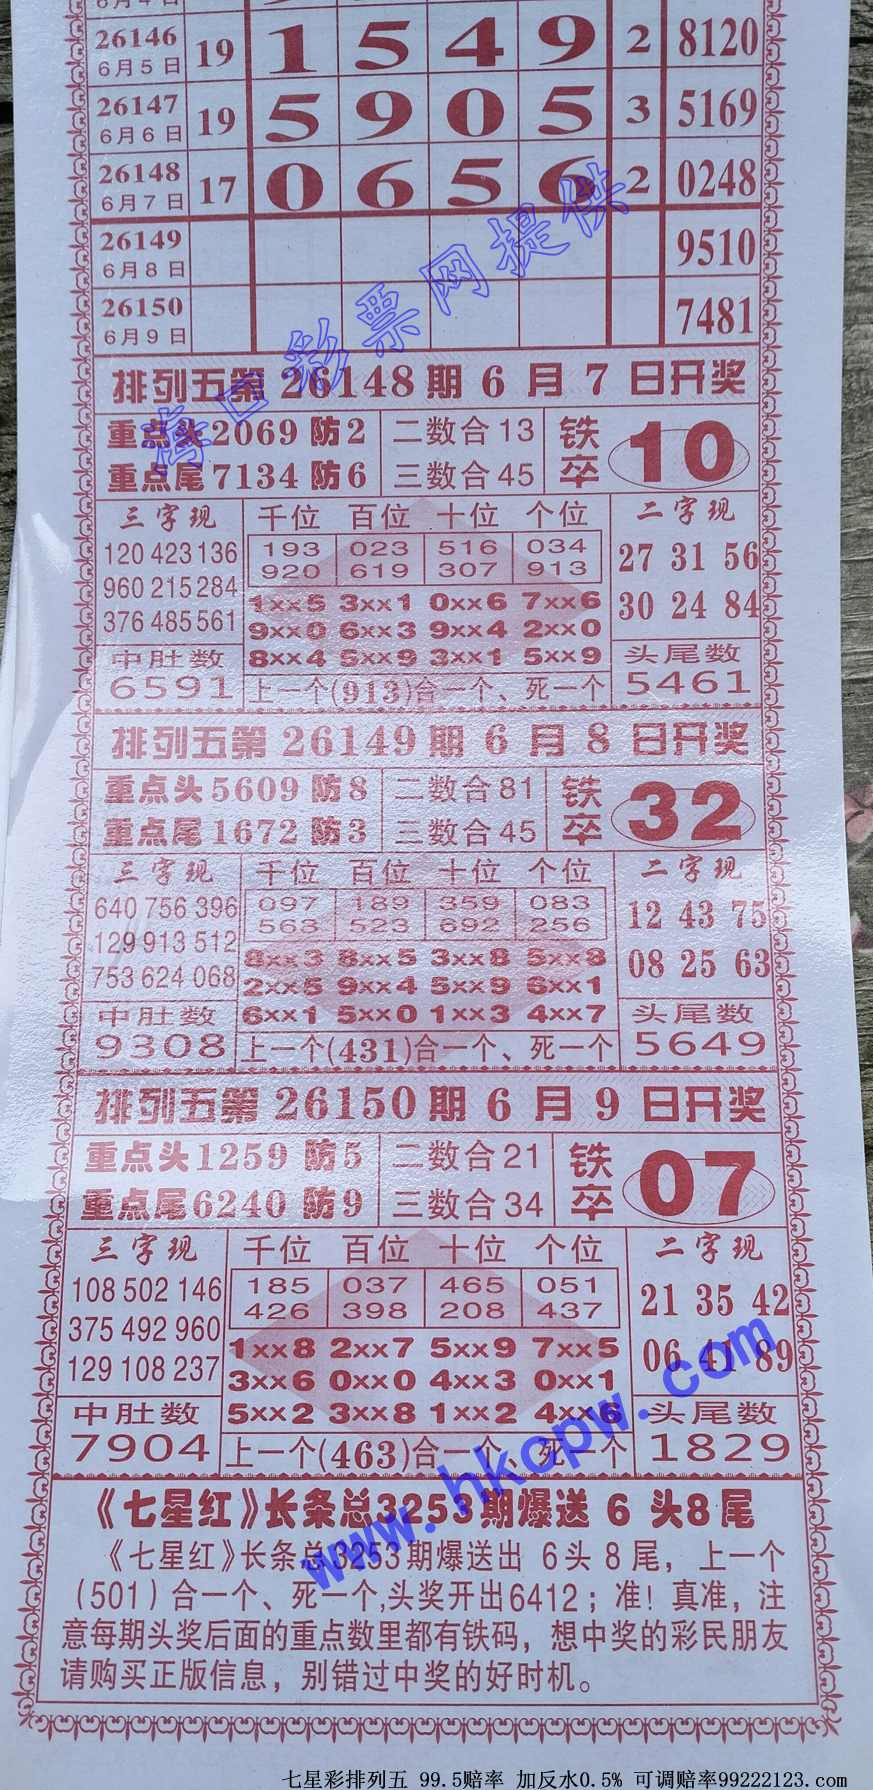 6月4日
26146 19 1 5 4 9 2 8120
6月5日
26147 19 5 9 0 5 3 5169
6月6日
26148 17 0 6 5 6 2 0248
6月7日
26149 9510
6月8日
26150 7481
6月9日
海口彩票网提供
排列五第 26148 期 6 月 7 日开奖
重点头2069 防2 二数合13 铁卒 10
重点尾7134 防6 三数合45
三字现 千位 百位 十位 个位 二字现
120 423 136 193 023 516 034 27 31 56
960 215 284 920 619 307 913
376 485 561 1xx5 3xx1 0xx6 7xx6 30 24 84
9xx0 6xx3 9xx4 2xx0
中肚数 8xx4 5xx9 3xx1 5xx9 头尾数
6591 上一个(913)合一个、死一个 5461
排列五第 26149 期 6 月 8 日开奖
重点头5609 防8 二数合81 铁卒 32
重点尾1672 防3 三数合45
三字现 千位 百位 十位 个位 二字现
640 756 396 097 189 359 083 12 43 75
129 913 512 563 523 692 256
753 624 068 8xx3 8xx5 3xx8 5xx8 08 25 63
2xx5 9xx4 5xx9 6xx1
中肚数 6xx1 5xx0 1xx3 4xx7 头尾数
9308 上一个(431)合一个、死一个 5649
排列五第 26150 期 6 月 9 日开奖
重点头1259 防5 二数合21 铁卒 07
重点尾6240 防9 三数合34
三字现 千位 百位 十位 个位 二字现
108 502 146 185 037 465 051 21 35 42
375 492 960 426 398 208 437
129 108 237 1xx8 2xx7 5xx9 7xx5 06 41 89
3xx6 0xx0 4xx3 0xx1
中肚数 5xx2 3xx8 1xx2 4xx6 头尾数
7904 上一个(463)合一个、死一个 1829
www.hkcpw.com
《七星红》长条总3253期爆送 6 头8尾
《七星红》长条总3253期爆送出 6头 8 尾，上一个
(501)合一个、死一个,头奖开出6412；准！真准，注
意每期头奖后面的重点数里都有铁码，想中奖的彩民朋友
请购买正版信息，别错过中奖的好时机。
七星彩排列五 99.5赔率 加反水0.5% 可调赔率99222123.com